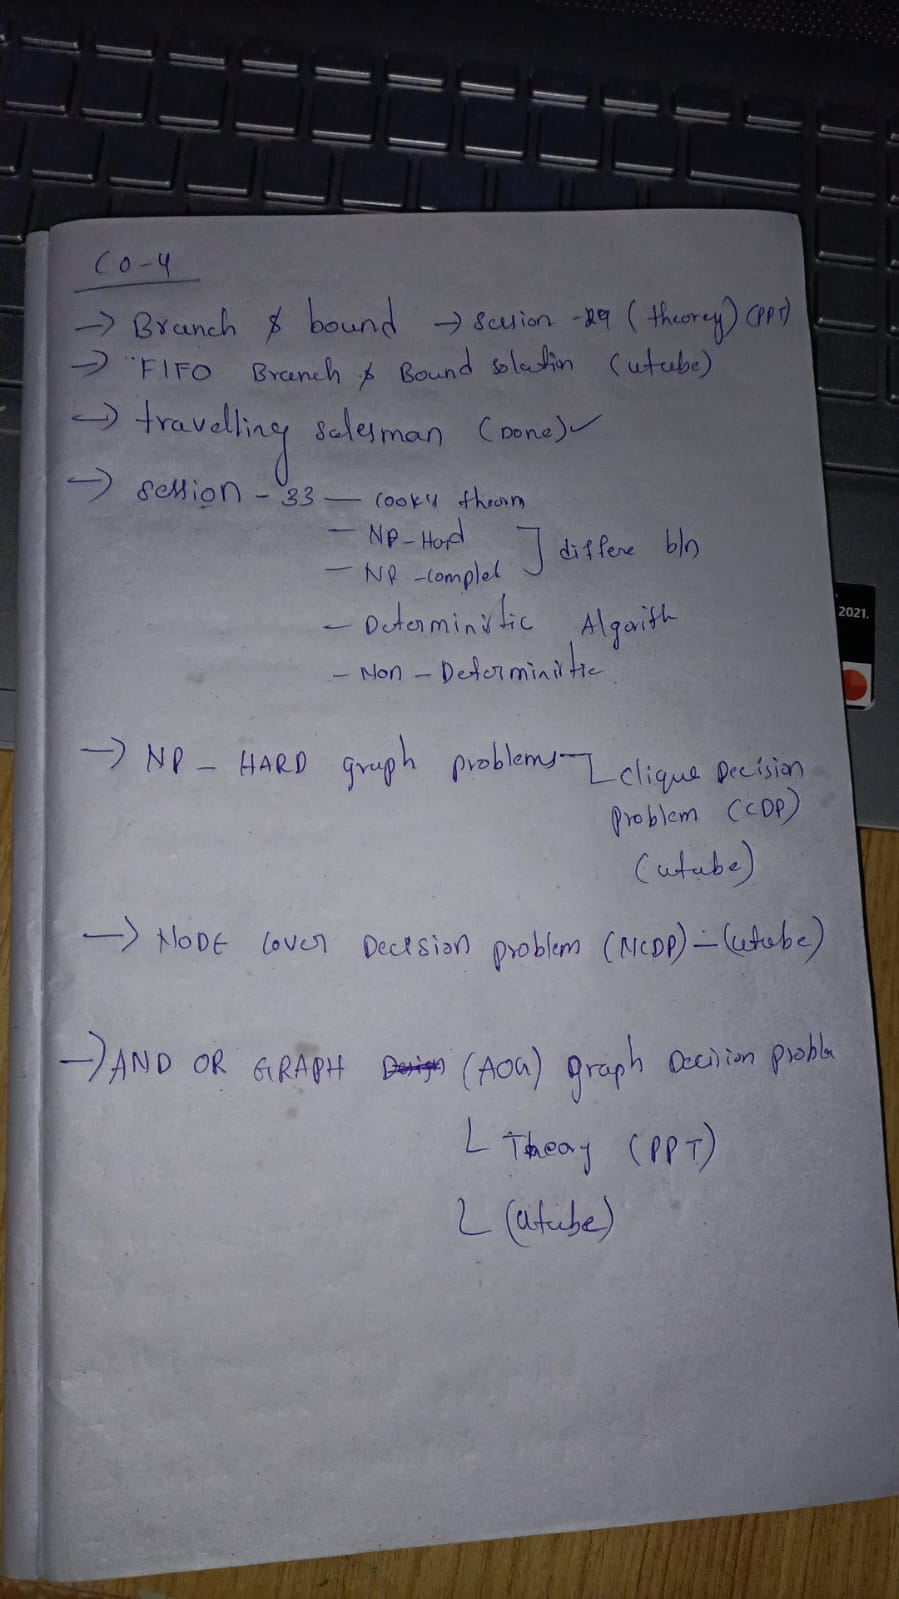 CO-4
→ Branch & bound → session -29 (theorey) (PPT)
→ "FIFO Branch & Bound solution (utube)
→ travelling salesman (Done)✓
→ session - 33 — cooky theorm
— NP-Hard ] differe b/n
— NP-complet
— Deterministic Algorith
— Non - Deterministic
→ NP - HARD graph problems clique Decision
problem (CDP)
(utube)
→ NODE cover Decision problem (NCDP) - (utube)
→ AND OR GRAPH Design (AOG) graph Decision proble
Theory (PPT)
(utube)
2021.